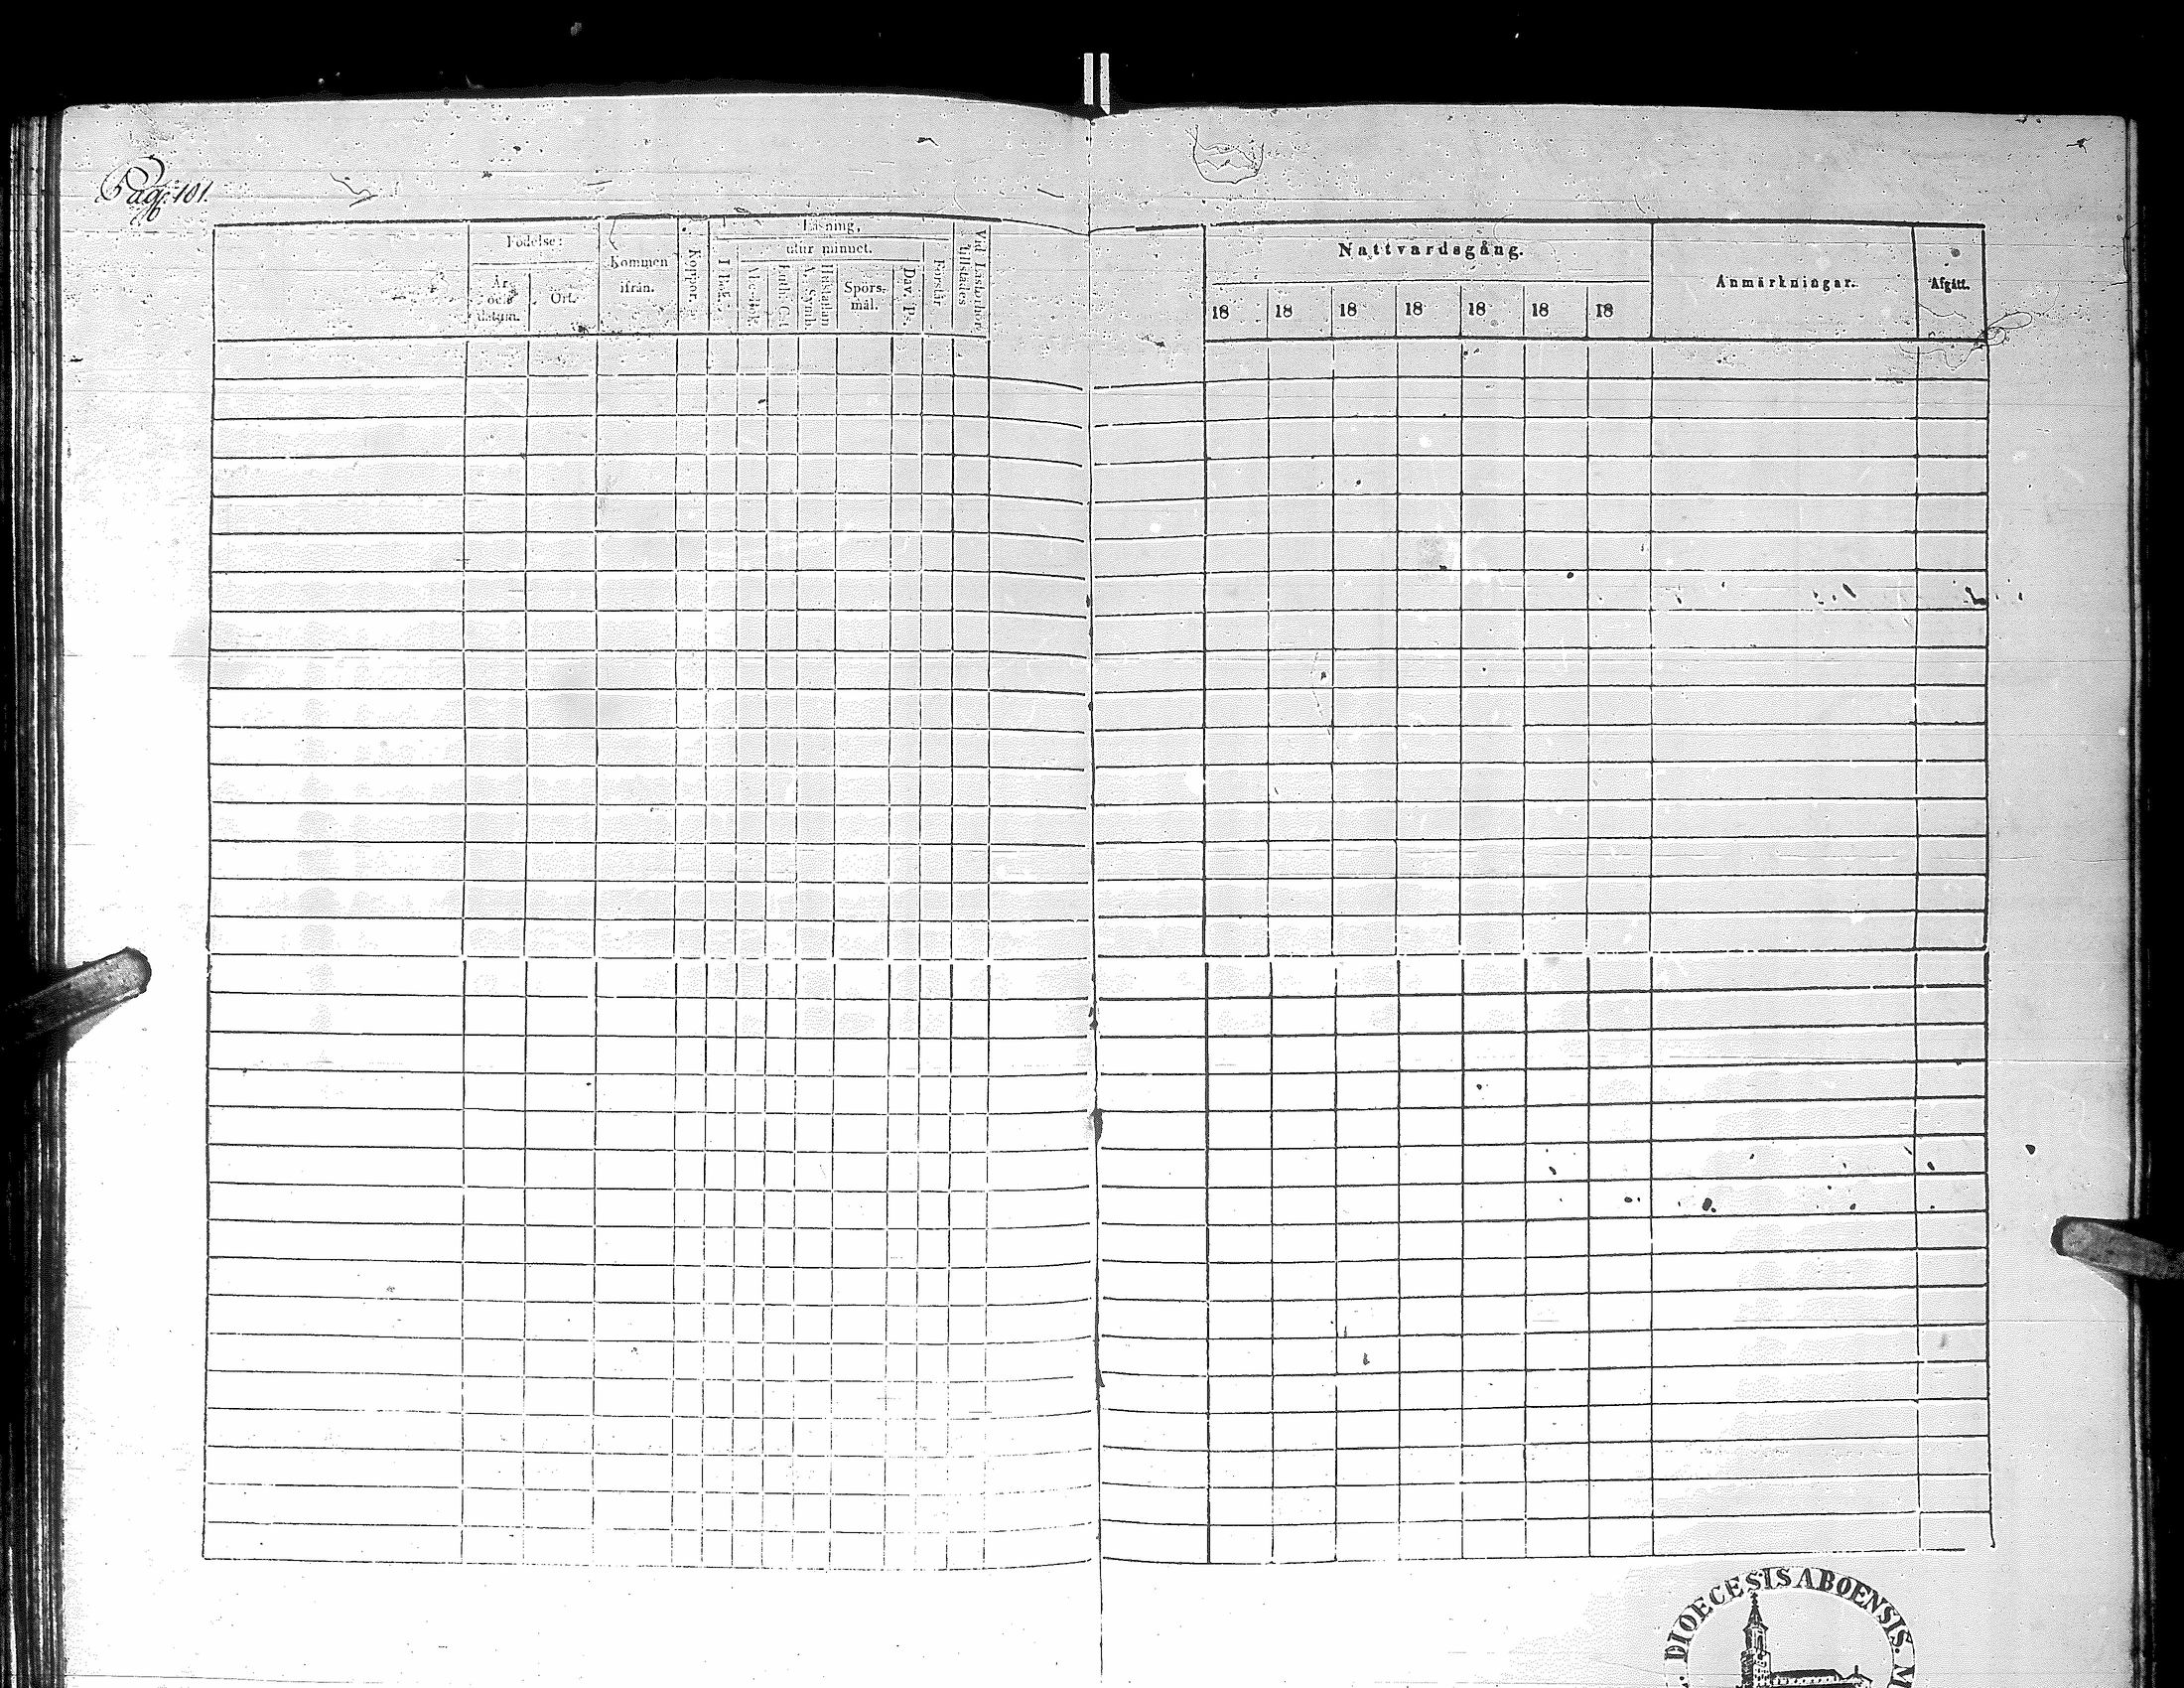 Pag. 101.
Födelse:
År och datum.
Ort.
Kommen ifrån.
Koppor.
Läsning,
utur minnet.
I bok.
Spörs-
mål.
Dav. Ps.
Förstår
Vid Läsförhör tillstädes
Nattvardsgång.
18 18 18 18 18 18 18
Anmärkningar.
Afgått.
DIOECESIS ABOENSIS.